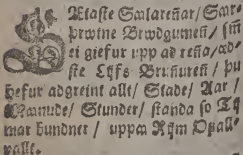 Ætaste Sælarenar/ Sære-
prwtne Brwdgumen/ sin
ei giefur upp ad rena/ æd-
ste Lijfs Brunuren/ þu
hefur adgreint allt/ Stade/ Aar/
Maanude/ Stunder/ standa so Tij
mar bundner/ uppaa Rijm Opall-
vallt.